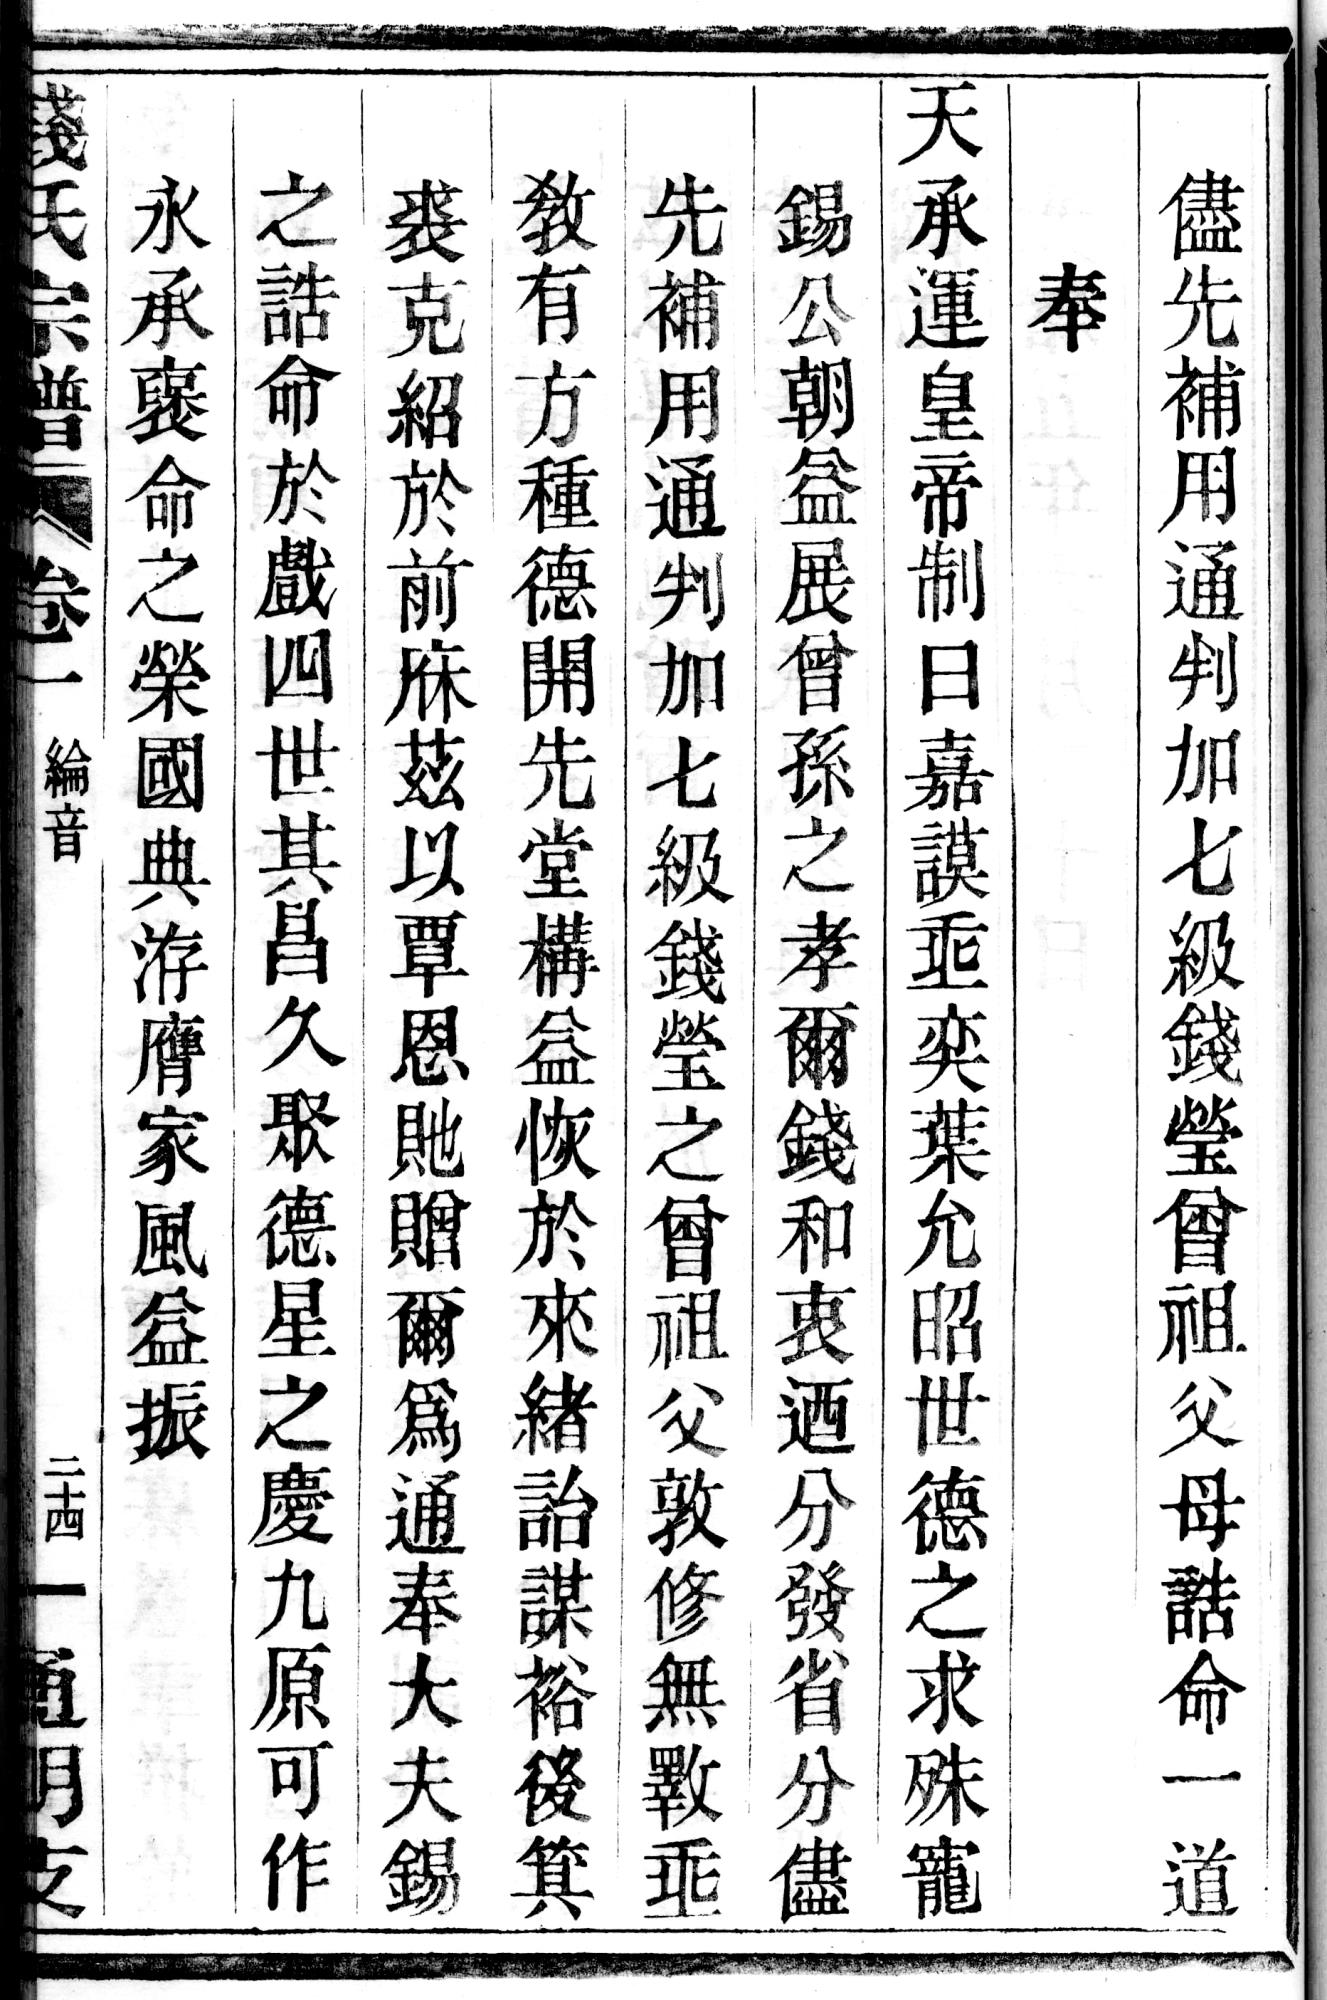 儘先補用通判加七級錢瑩曾祖父母誥命一道
奉
天承運皇帝制曰嘉謨垂奕葉允昭世德之求殊寵
錫公朝益展曾孫之孝爾錢和衷迺分發省分儘
先補用通判加七級錢瑩之曾祖父敦修無斁垂
教有方種德開先堂構益恢於來緒詒謀裕後箕
裘克紹於前庥茲以覃恩貤贈爾爲通奉大夫錫
之誥命於戲四世其昌久聚德星之慶九原可作
永承褒命之榮國典洊膺家風益振
錢氏宗譜 卷一 綸音 二十四 一 通明支